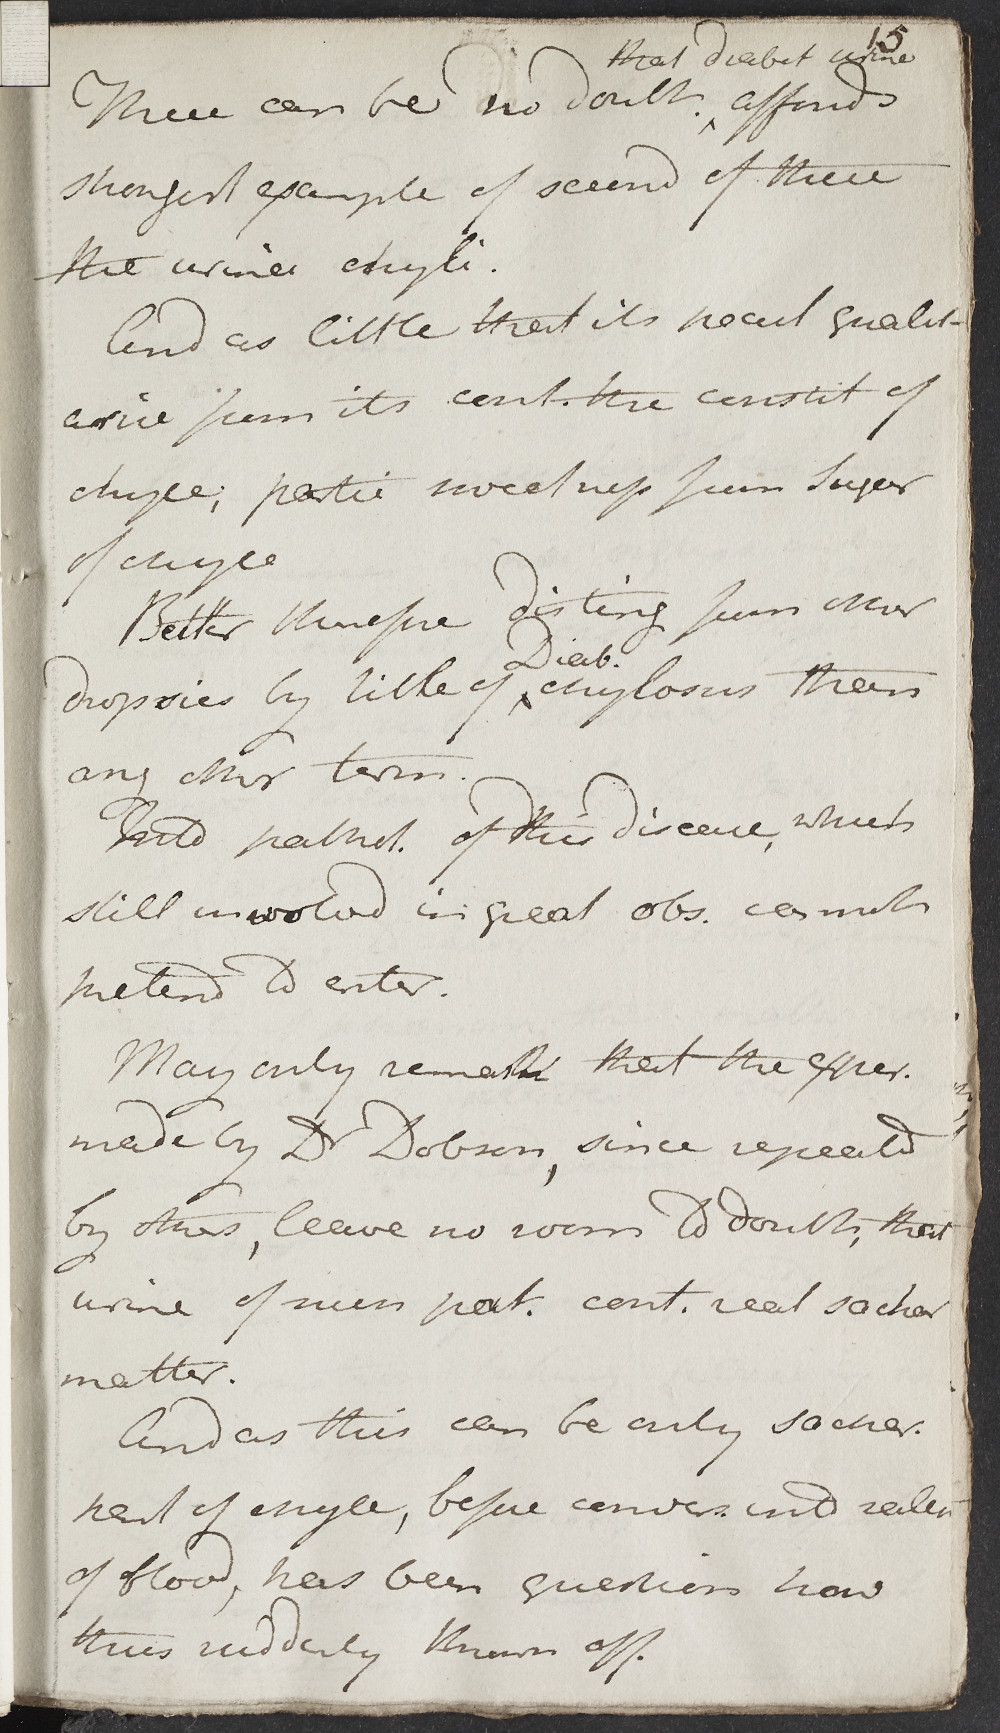 15
that diabet urine
There can be no doubt, ^ affords
strongest example of second of these
the urina chyli.
And as little that its pecul qualit-
arise from its cont. the constit of
chyle; partic sweetness from Sugar
of chyle
Better therefore disting from other
Diab.
dropsies by title of ^ chylosus than
any other term.
Into pathol. of this disease, which
still involved in great obs. cannot
pretend to enter.
May only remark that the exper.
made by Dr Dobson, since repeated
by others, leave no room to doubt, that
urine of such pat. cont. real sacchar
matter.
And as this can be only sacchar.
part of chyle, before convers. into
of blood, has been question how
thus suddenly thrown off.